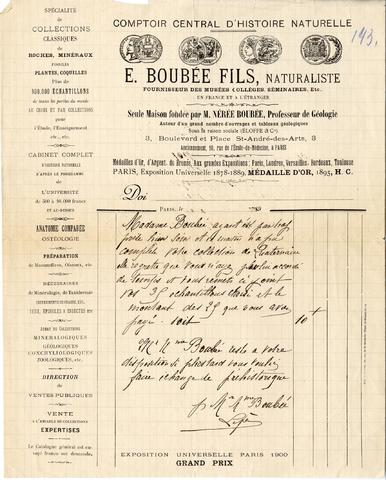 SPÉCIALITÉ
de
COLLECTIONS
CLASSIQUES
de
ROCHES, MINÉRAUX
FOSSILES
PLANTES, COQUILLES
Plus de
800,000 ÉCHANTILLONS
de toutes les parties du monde
AU CHOIX ET PAR COLLECTIONS
pour
l'Étude, l'Enseignement
etc., etc.
CABINET COMPLET
D'HISTOIRE NATURELLE
D'APRÈS LE PROGRAMME
de
L'UNIVERSITÉ
de 500 à 80.000 francs
ET AU-DESSUS
ANATOMIE COMPARÉE
OSTÉOLOGIE
PRÉPARATION
de Mammifères, Oiseaux, etc.
NÉCESSAIRES
de Minéralogie, de Taxidermie
YEUX, ÉPINGLES A INSECTES etc
ACHAT DE COLLECTIONS
MINÉRALOGIQUES
GÉOLOGIQUES
CONCHYLIOLOGIQUES
ZOOLOGIQUES, etc.
DIRECTION
de
VENTES PUBLIQUES
VENTE
A L'AMIABLE DE COLLECTIONS
EXPERTISES
Le Catalogue général est
envoyé sur demande.
COMPTOIR CENTRAL D'HISTOIRE NATURELLE
193.
E. BOUBÉE FILS, NATURALISTE
FOURNISSEUR DES MUSÉES COLLÈGES, SÉMINAIRES, Etc.
EN FRANCE ET A L'ÉTRANGER
Seule Maison fondée par M. NÉRÉE BOUBÉE, Professeur de Géologie
Auteur d'un grand nombre d'ouvrages et tableaux géologiques
Sous la raison sociale (ÉLOFFE & Cie)
3, Boulevard et Place St-André-des-Arts, 3
Anciennement, 10, rue de l'École-de-Médecine, à PARIS
Médailles d'Or, d'Argent, de Bronze, Aux grandes Expositions: Paris, Londres, Versailles, Bordeaux, Toulouse
PARIS, Exposition Universelle 1878-1889, MÉDAILLE D'OR, 1895, H. C.
Doi
PARIS, le
Madame Boubée ayant été
complété votre collection de Quaternaire
regrette que vous n'ayez
de temps et vous remets ci joint
vos 35 échantillons et le
montant des 25 que vous avez
payé soit 10
Mr Née Boubée reste à votre
disposition si plus tard vous voulez
faire échange de préhistorique
Boubée
EXPOSITION UNIVERSELLE PARIS 1900
GRAND PRIX